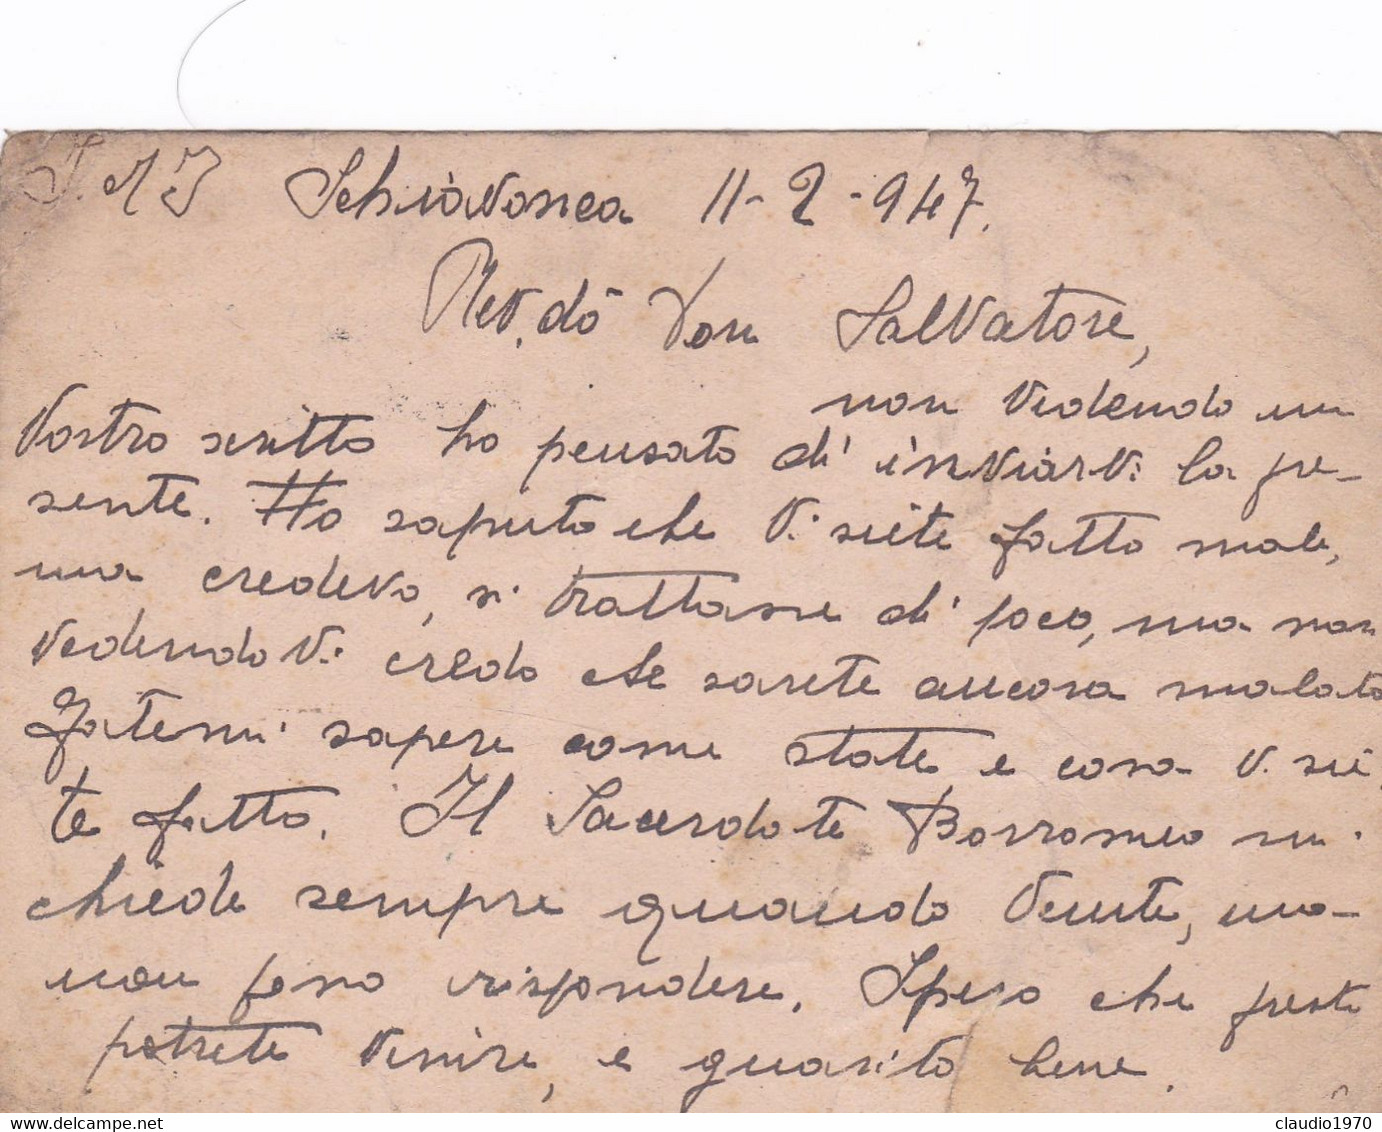 J. M J Schiavonea 11-2-947.
Rev.do Don Salvatore,
non vedendo un
vostro scritto ho pensato di inviarvi la pre-
sente. Ho saputo che vi siete fatto male,
ma credevo, si trattasse di poco, ma non
vedendovi credo che sarete ancora malato
fatemi sapere come state e cosa vi sie
te fatto. Il Sacerdote Borromeo mi
chiede sempre quando venite, ma-
non posso rispondere. Spero che presto
potrete venire, e guarito bene.
delcampe.net
claudio1970